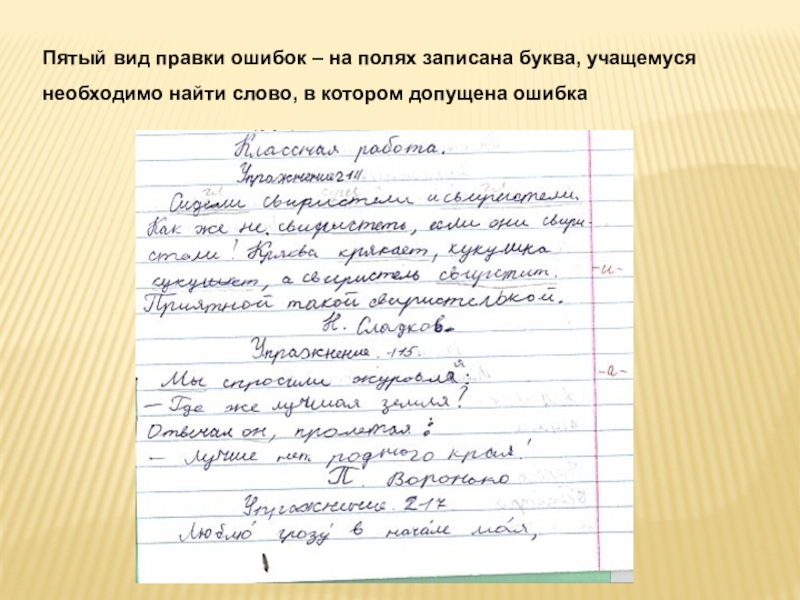 Пятый вид правки ошибок – на полях записана буква, учащемуся
необходимо найти слово, в котором допущена ошибка
Классная работа.
Упражнение 214.
гл сущ гл
Сидели свиристели и свиристели.
Как же не свиристеть, если они свири-
стели! Кряква крякает, кукушка
кукушкет, а свиристель свирстит. -и-
Приятной такой свиристелькой.
Н. Сладков.
Упражнение 115.
Мы спросили журовля: -а-
– Где же лучшая земля?
Отвечал он, пролетая:
– Лучше нет родного края!
П. Воронько
Упражнение. 217
Люблю́ грозу́ в нача́ле ма́я,